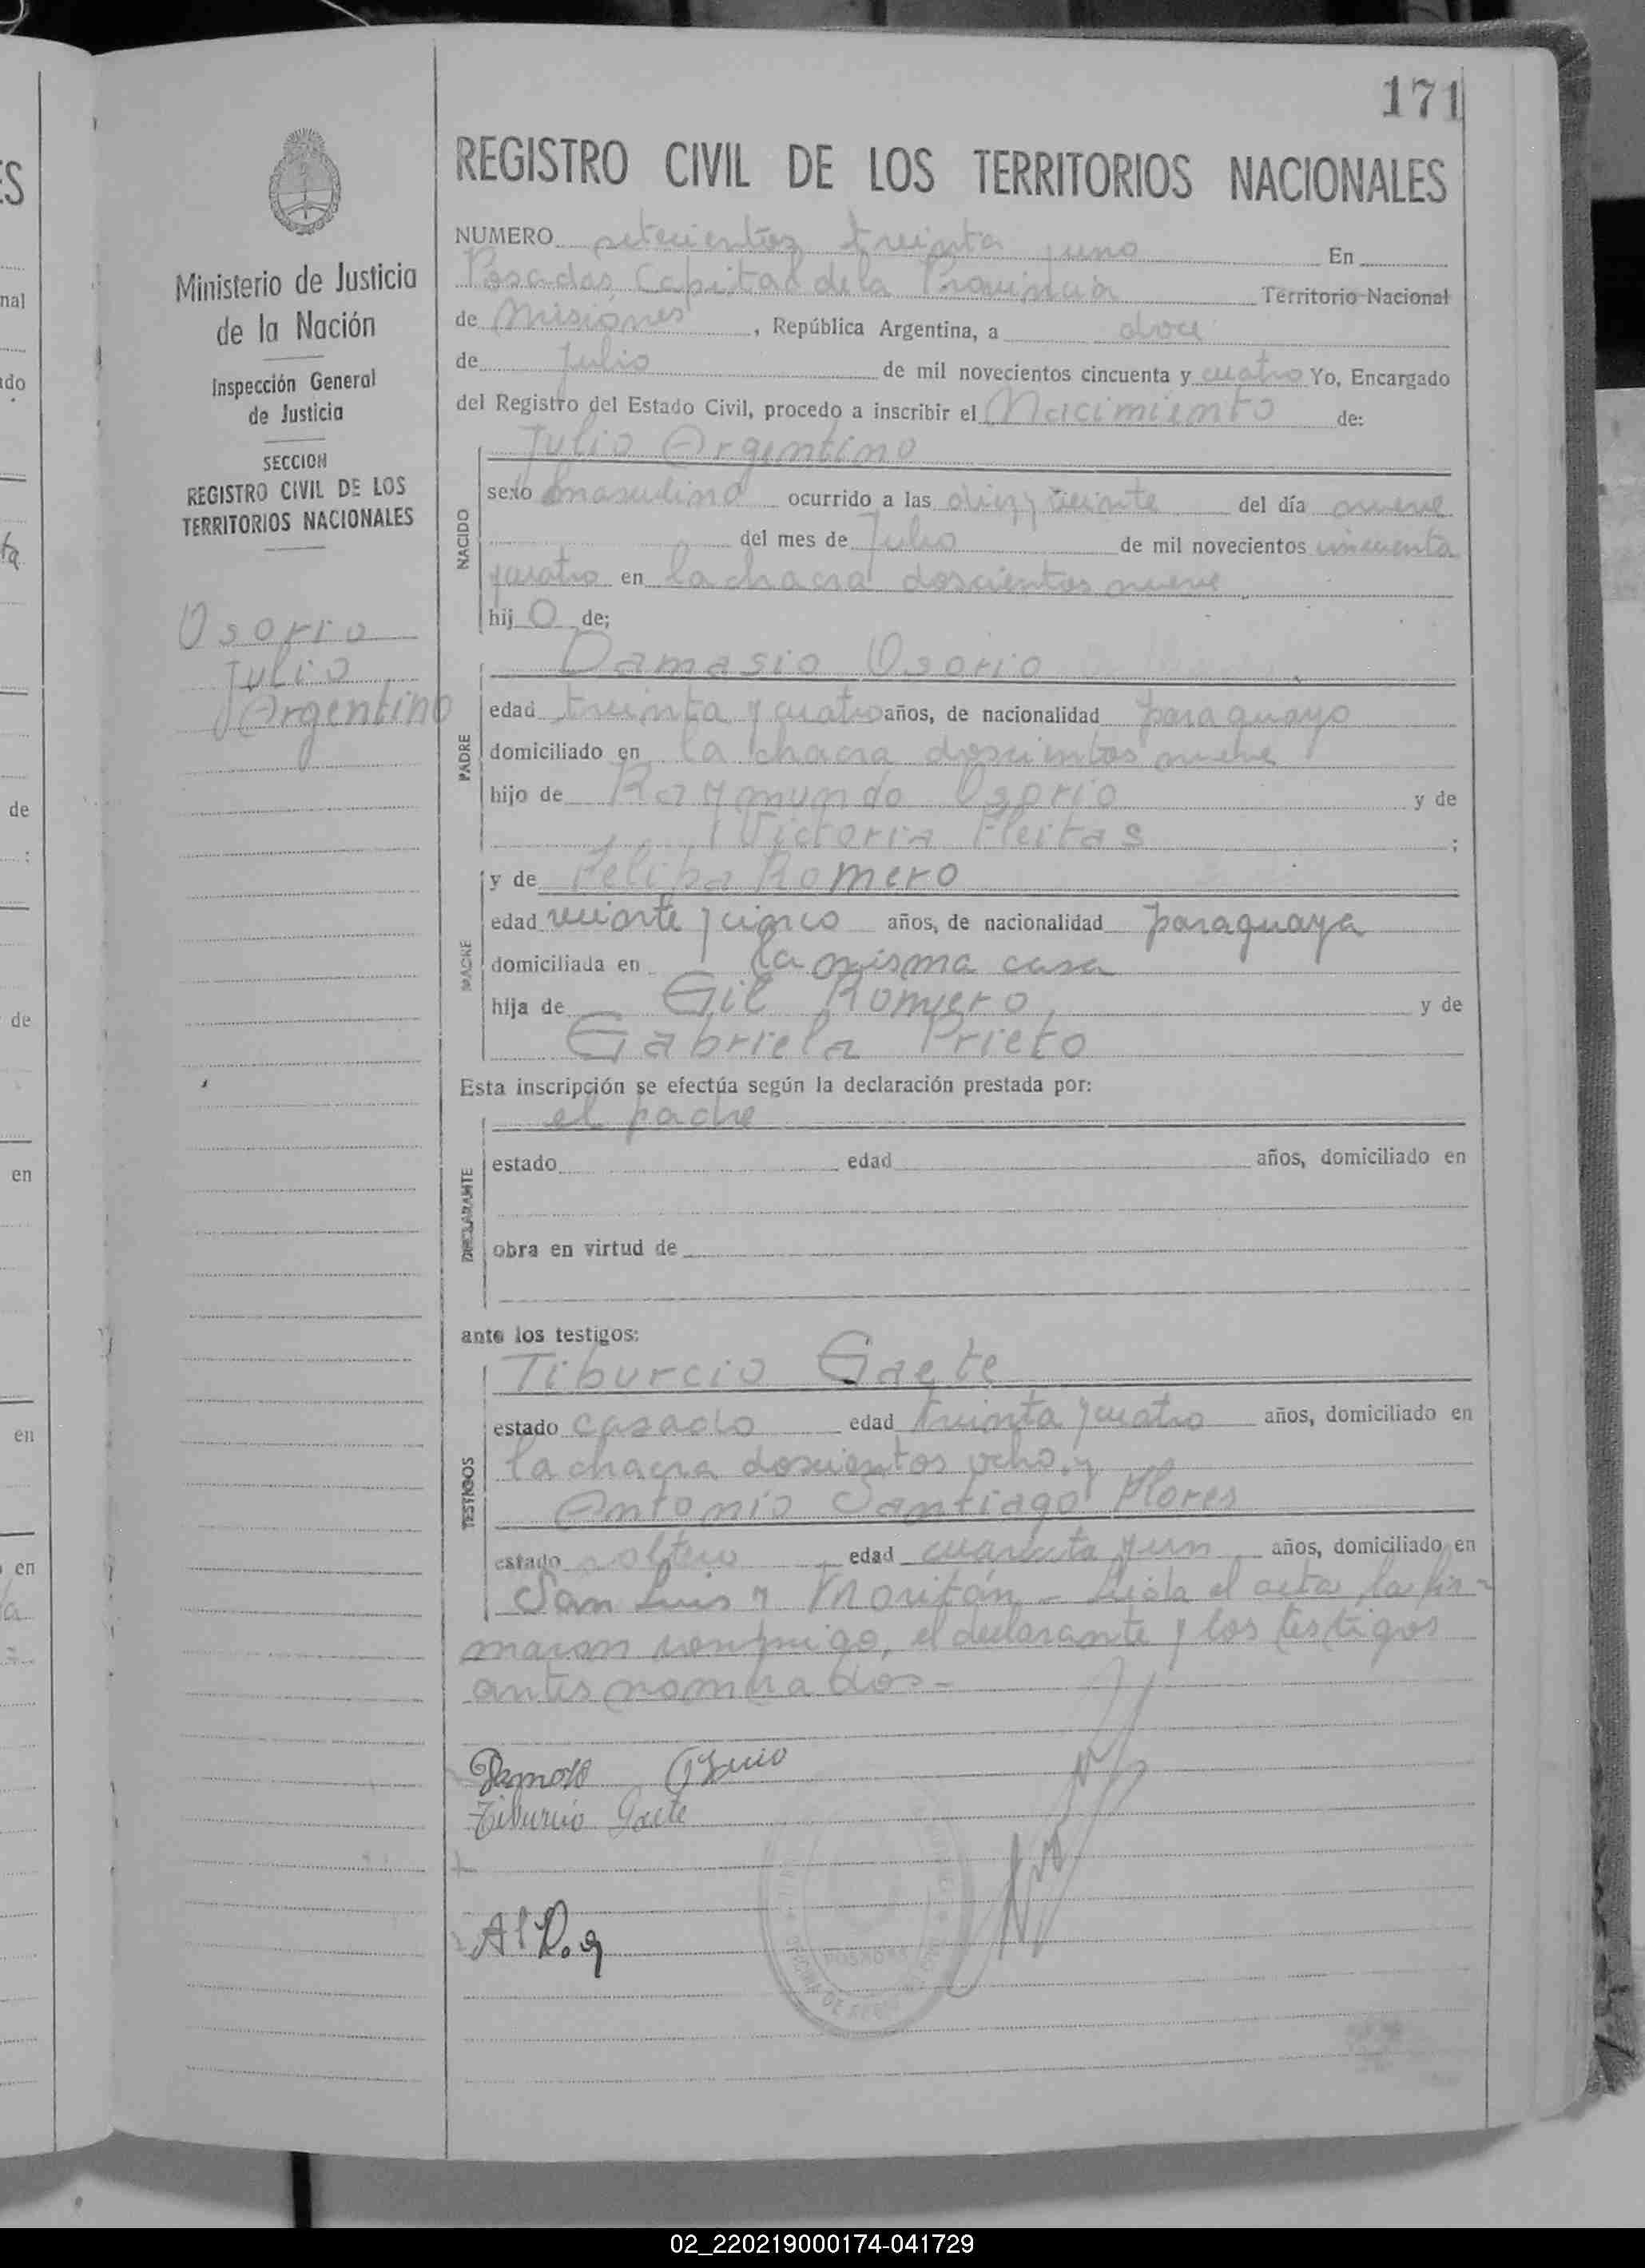 171
REGISTRO CIVIL DE LOS TERRITORIOS NACIONALES
Ministerio de Justicia
de la Nación
Inspección General
de Justicia
SECCION
REGISTRO CIVIL DE LOS
TERRITORIOS NACIONALES
Osorio
Julio
Argentino
NUMERO setecientos treinta y uno En
Posadas, Capital de la Provincia Territorio Nacional
de Misiones, República Argentina, a doce
de Julio de mil novecientos cincuenta y cuatro Yo, Encargado
del Registro del Estado Civil, procedo a inscribir el Nacimiento de:
NACIDO
Julio Argentino
sexo masculino ocurrido a las diez y veinte del día nueve
del mes de Julio de mil novecientos cincuenta
y cuatro en la chacra doscientos nueve
hij o de;
PADRE
Damasio Osorio
edad treinta y cuatro años, de nacionalidad paraguayo
domiciliado en la chacra doscientos nueve
hijo de Raymundo Osorio y de
Victoria Fleitas ;
MADRE
y de Felipa Romero
edad veinte y cinco años, de nacionalidad paraguaya
domiciliada en la misma casa
hija de Gil Romero y de
Gabriela Prieto
Esta inscripción se efectúa según la declaración prestada por:
DECLARANTE
el padre
estado edad años, domiciliado en
obra en virtud de
ante los testigos:
TESTIGOS
Tiburcio Gaete
estado casado edad treinta y cuatro años, domiciliado en
la chacra doscientos ocho y
Antonio Santiago Flores
estado soltero edad cuarenta y un años, domiciliado en
San Luis y Moritán - Leída el acta la fir-
maron conmigo, el declarante y los testigos
antes nombrados -
Osorio
Tiburcio Gaete
POSADAS
02_220219000174-041729